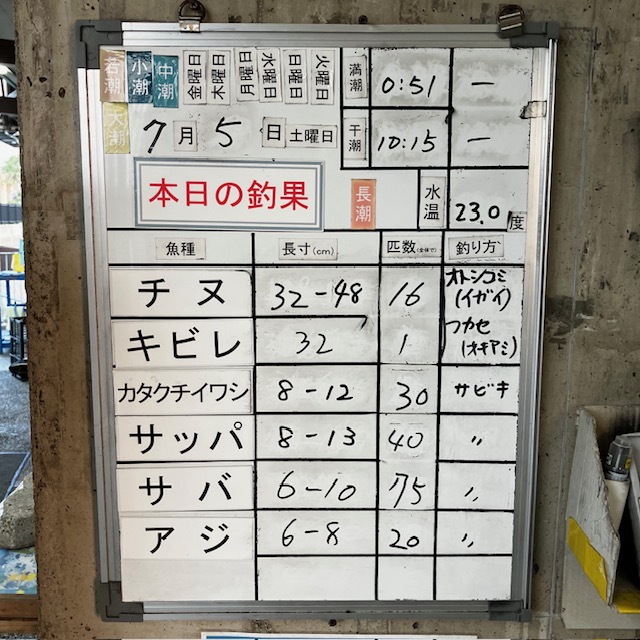 若潮 小潮 中潮 金曜日 木曜日 日曜月 水曜日 日曜日 火曜日 満潮 0:51 —
大潮 7月5日 土曜日 干潮 10:15 —
本日の釣果 長潮 水温 23.0度
魚種 長寸(cm) 匹数(全体で) 釣り方
チヌ 32-48 16 オトシコミ(イガイ)
キビレ 32 1 フカセ(オキアミ)
カタクチイワシ 8-12 30 サビキ
サッパ 8-13 40 〃
サバ 6-10 75 〃
アジ 6-8 20 〃